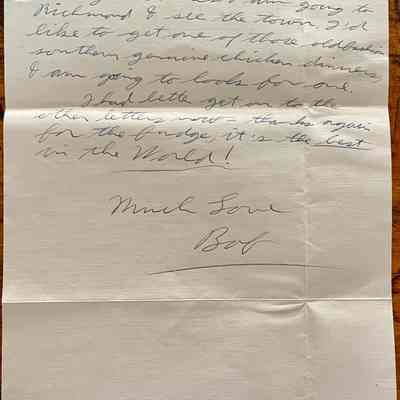 am going to
Richmond & see the town I'd
like to get one of those old
southern genuine chicken dinners,
I am going to look for one.
I had bette get on to the
other letters now - thanks again
for the fudge, it's the best
in the World!
Much Love
Bob